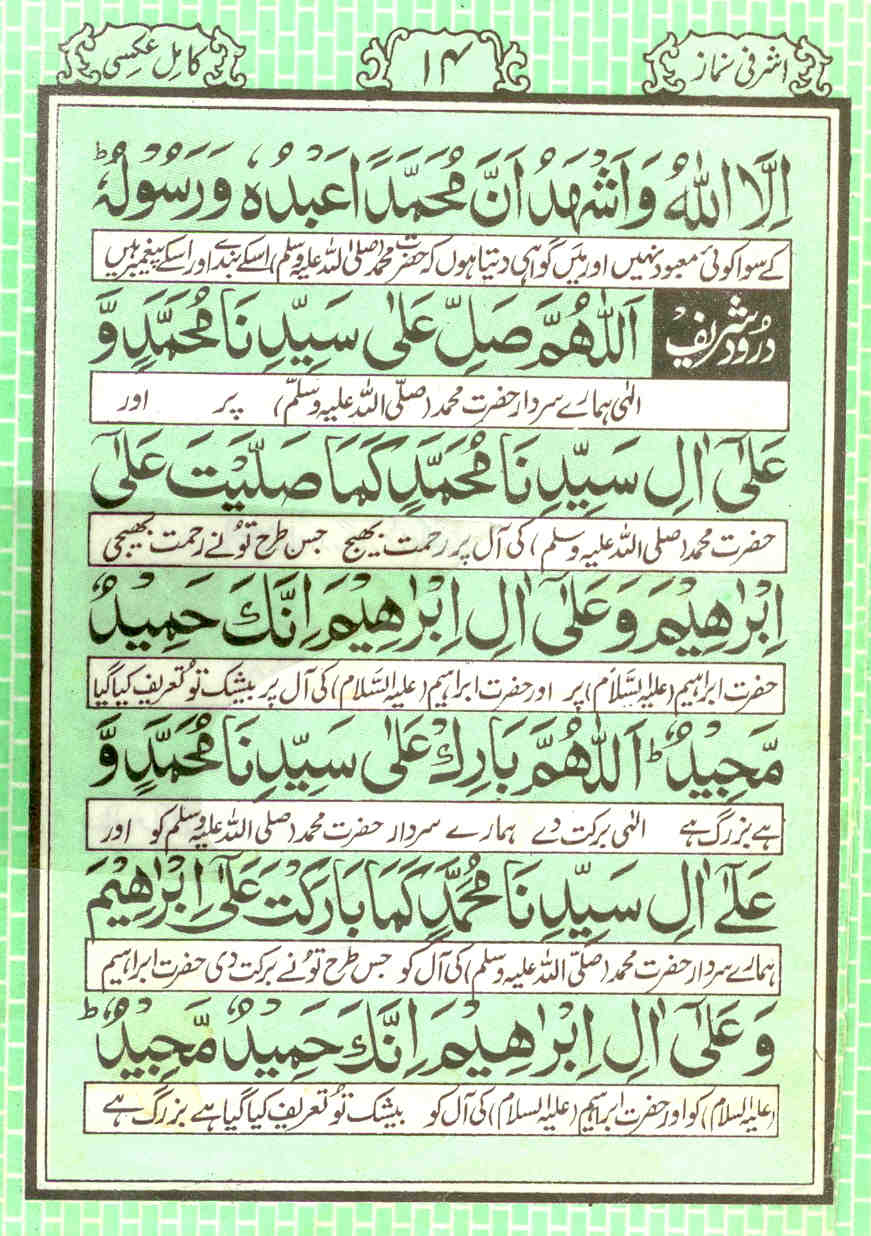 اشرفی نماز ۱۴ کامل عکسی
اِلَّا اللّٰهُ وَاَشْهَدُ اَنَّ مُحَمَّدًا عَبْدُهٗ وَرَسُوْلُهٗ ؕ
کے سوا کوئی معبود نہیں اور میں گواہی دیتا ہوں کہ حضرت محمد (صلی اللہ علیہ وسلم) اسکے بندے اور اسکے پیغمبر ہیں
دُرُود شریف اَللّٰهُمَّ صَلِّ عَلٰى سَيِّدِنَا مُحَمَّدٍ وَّ
الٰہی ہمارے سردار حضرت محمد (صلّی اللہ علیہ وسلّم) پر اور
عَلٰٓى اٰلِ سَيِّدِنَا مُحَمَّدٍ كَمَا صَلَّيْتَ عَلٰٓى
حضرت محمد (صلی اللہ علیہ وسلم) کی آل پر رحمت بھیج جس طرح تُو نے رحمت بھیجی
اِبْرٰهِيْمَ وَعَلٰٓى اٰلِ اِبْرٰهِيْمَ اِنَّكَ حَمِيْدٌ
حضرت ابراہیم (علیہ السّلام) پر اور حضرت ابراہیم (علیہ السّلام) کی آل پر بیشک تُو تعریف کیا گیا
مَّجِيْدٌ ؕ اَللّٰهُمَّ بَارِكْ عَلٰى سَيِّدِنَا مُحَمَّدٍ وَّ
ہے بزرگ ہے الٰہی برکت دے ہمارے سردار حضرت محمد (صلی اللہ علیہ وسلم) کو اور
عَلٰٓى اٰلِ سَيِّدِنَا مُحَمَّدٍ كَمَا بَارَكْتَ عَلٰٓى اِبْرٰهِيْمَ
ہمارے سردار حضرت محمد (صلّی اللہ علیہ وسلم) کی آل کو جس طرح تُو نے برکت دی حضرت ابراہیم
وَعَلٰٓى اٰلِ اِبْرٰهِيْمَ اِنَّكَ حَمِيْدٌ مَّجِيْدٌ ؕ
(علیہ السلام) کو اور حضرت ابراہیم (علیہ السلام) کی آل کو بیشک تُو تعریف کیا گیا ہے بزرگ ہے